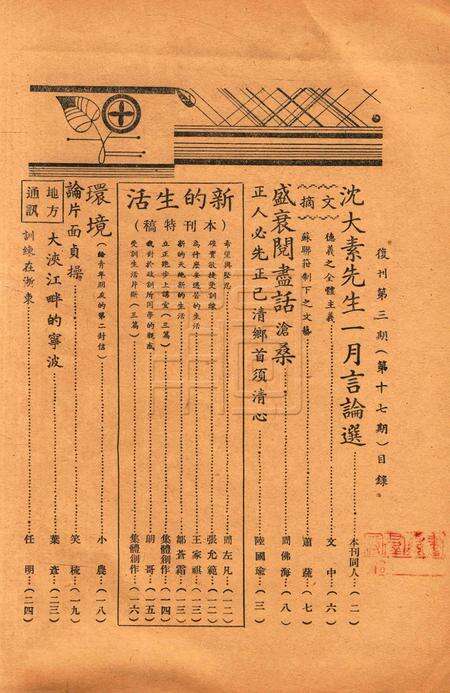 復刊第三期(第十七期)目錄
沈大素先生一月言論選……本刊同人…(二)
文摘
德義之全體主義……文中…(六)
蘇聯箝制下之文藝……蕭蕤…(七)
盛衰閱盡話滄桑……周佛海…(八)
正人必先正己清鄉首須清心……陸國瑜…(三)
新的生活
(本刊特稿)
希望與堅忍……周左凡…(一二)
確實敏捷受訓練……張允範…(一二)
為什麼幸過苦的生活……王家祺…(一三)
新的天地新的生活……鄒蒼霜…(一三)
立正跑步上講堂(三篇)……集體創作…(一四)
我對於政訓所同學的觀感……胡哥…(一五)
受訓生活片斷(三篇)……集體創作…(一六)
環境(給青年朋友的第二封信)……小農…(一八)
論片面貞操……笑穢…(一九)
地方通訊
大浹江畔的寧波……葉彥…(二三)
訓練在浙東……任明…(二四)